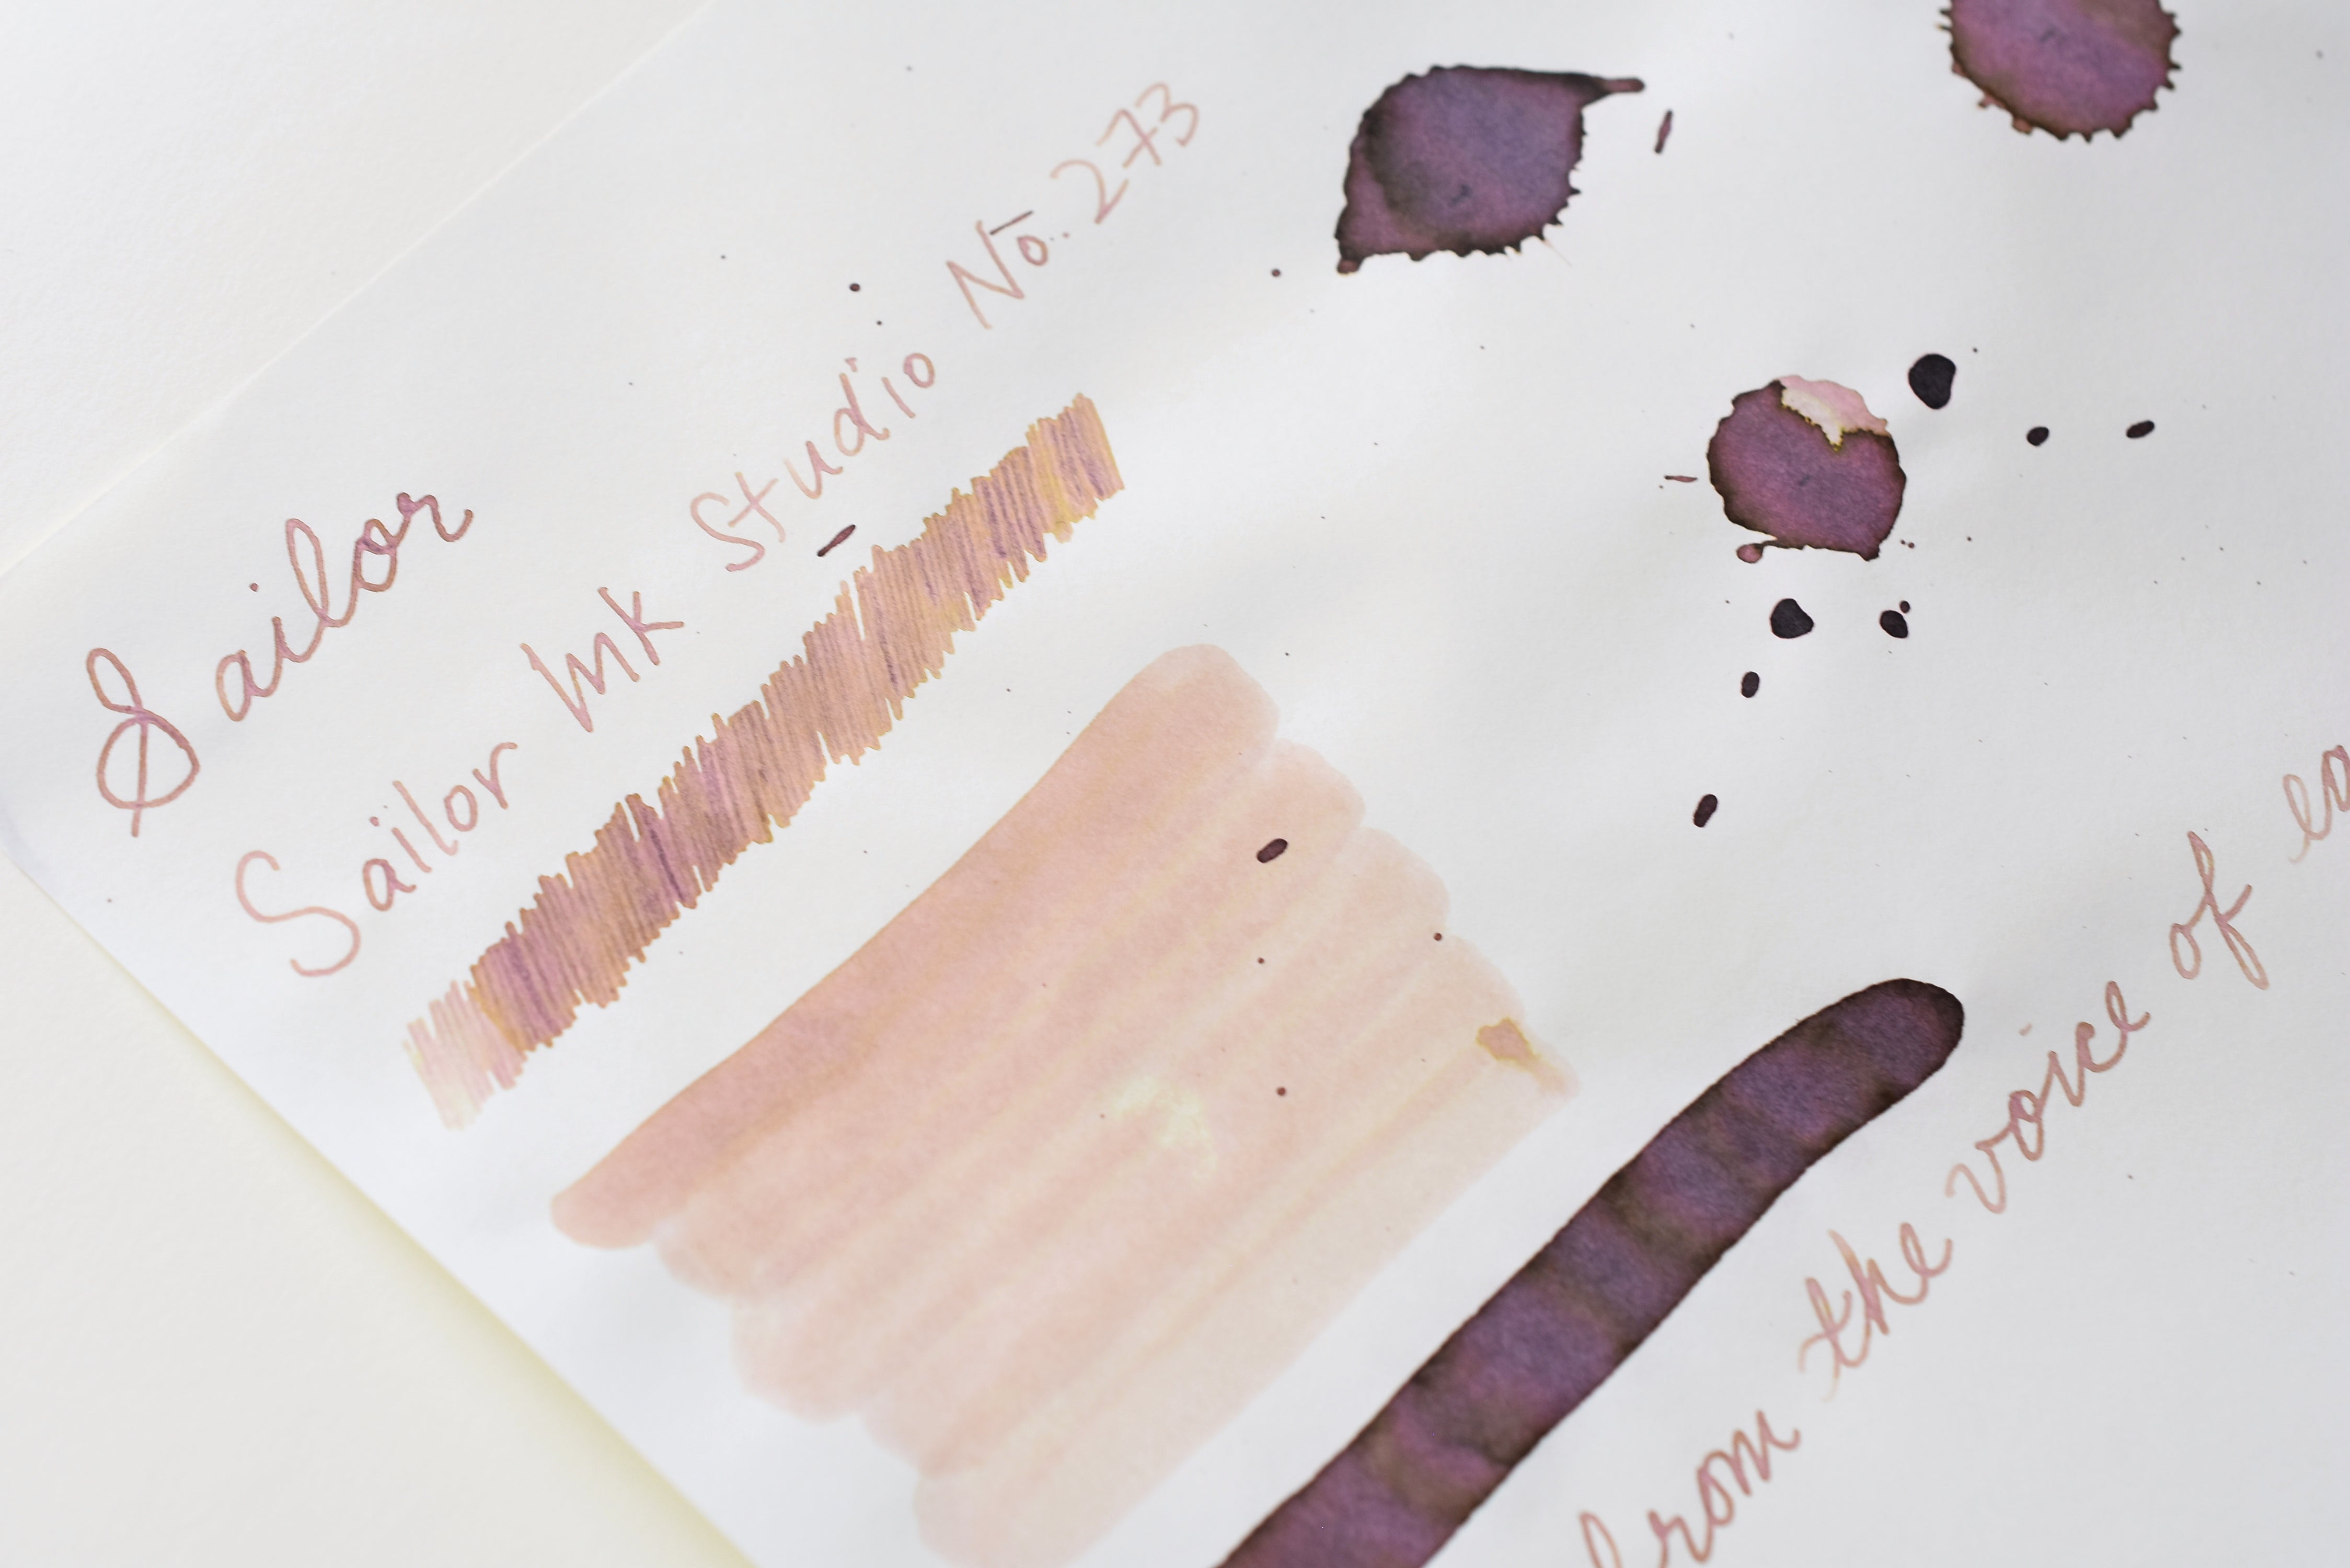 Sailor
Sailor Ink Studio No. 273
from the voice of